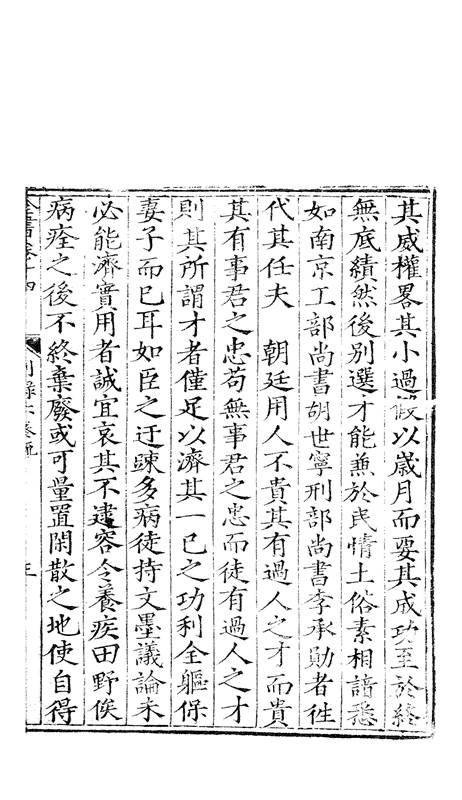 其威權畧其小過假以歳月而要其成功至於終
無底績然後別選才能兼於民情土俗素相諳悉
如南京工部尚書胡世寧刑部尚書李承勛者徃
代其任夫　朝廷用人不貴其有過人之才而貴
其有事君之忠苟無事君之忠而徒有過人之才
則其所謂才者僅足以濟其一己之功利全軀保
妻子而已耳如臣之迂踈多病徒持文墨議論未
必能濟實用者誠宜哀其不逮容令養疾田野俟
病痊之後不終棄廢或可量置閑散之地使自得
全書卷十四
別錄六奏疏